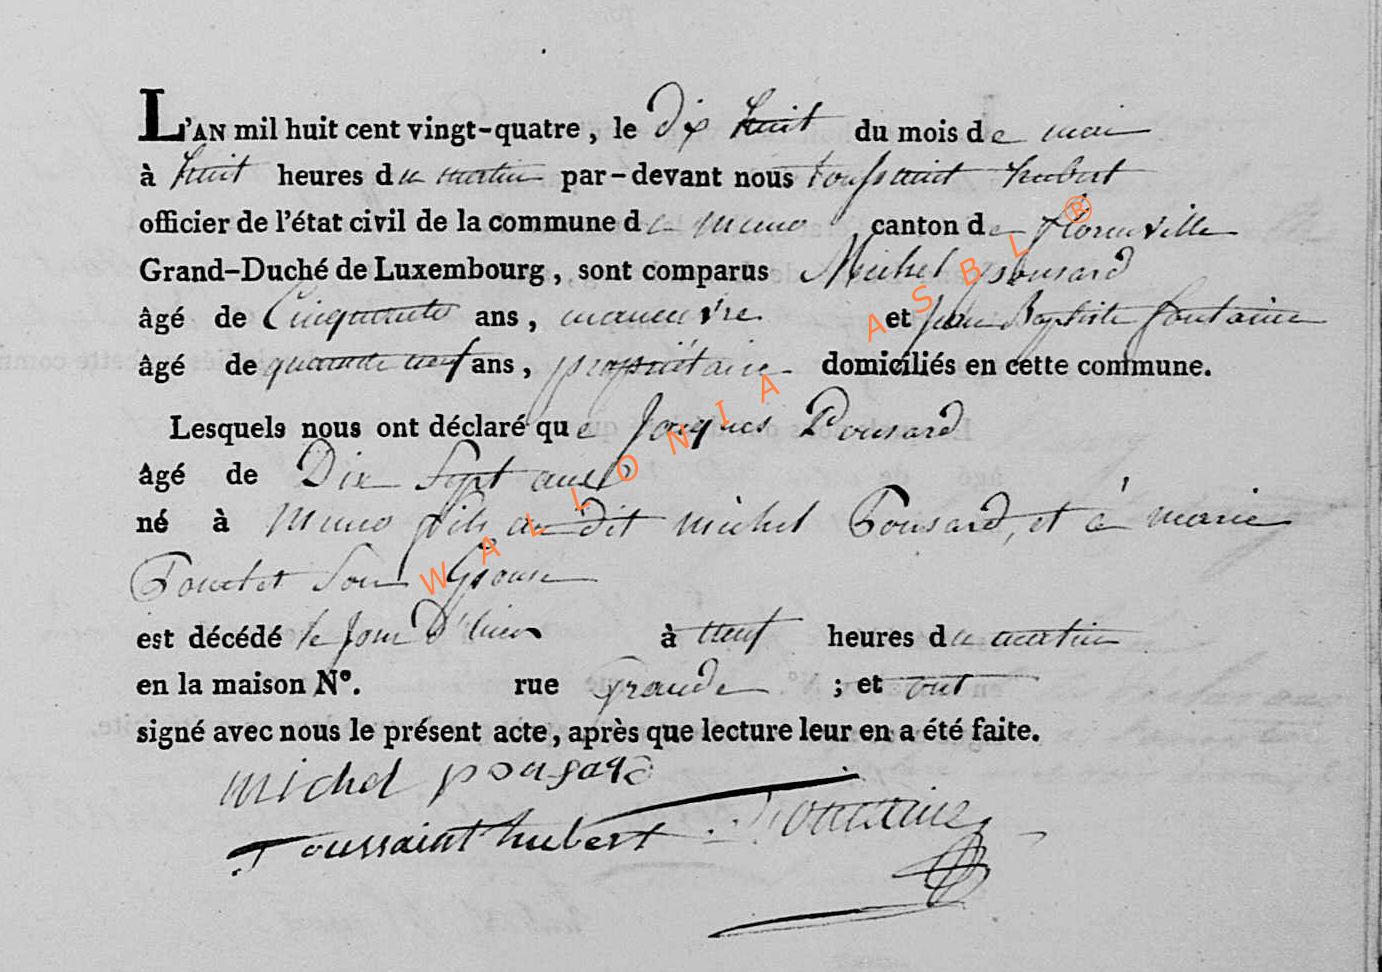 L'AN mil huit cent vingt-quatre, le dix huit du mois de mai
à huit heures du matin par-devant nous toussaint hubert
officier de l'état civil de la commune de muno canton de florenville
Grand-Duché de Luxembourg, sont comparus Michel pousard
âgé de Cinquante ans, maneuvre et jean Baptiste fontaine
âgé de quarante neuf ans, propriétaire domiciliés en cette commune.
Lesquels nous ont déclaré que Jacques Pousard
âgé de Dix Sept ans
né à muno fils au dit michel Pousard, et à marie
son Epouse
est décédé le jour d'hier à neuf heures du matin
en la maison N°. rue Grande ; et ont
signé avec nous le présent acte, après que lecture leur en a été faite.
michel pousard
toussaint hubert fontaine
WALLONIA ASBL ®